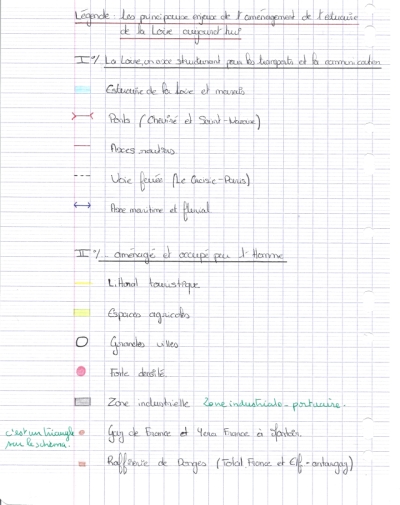 Légende : Les principaux enjeux de l'aménagement de l'estuaire
de la Loire aujourd'hui
I°/ La Loire, un axe structurant pour les transports et la communication
Estuaire de la Loire et marais
Ponts (Cheviré et Saint-Nazaire)
Axes routiers
Voie ferrée (Le Croisic-Paris)
Axe maritime et fluvial
II°/ - aménagé et occupé par l'Homme
Littoral touristique
Espaces agricoles
Grandes villes
Forte densité
Zone industrielle Zone industrialo-portuaire.
c'est un triangle
sur le schéma.
Gaz de France et Yara France à
Raffinerie de Donges (Total France et Elf-antargaz)